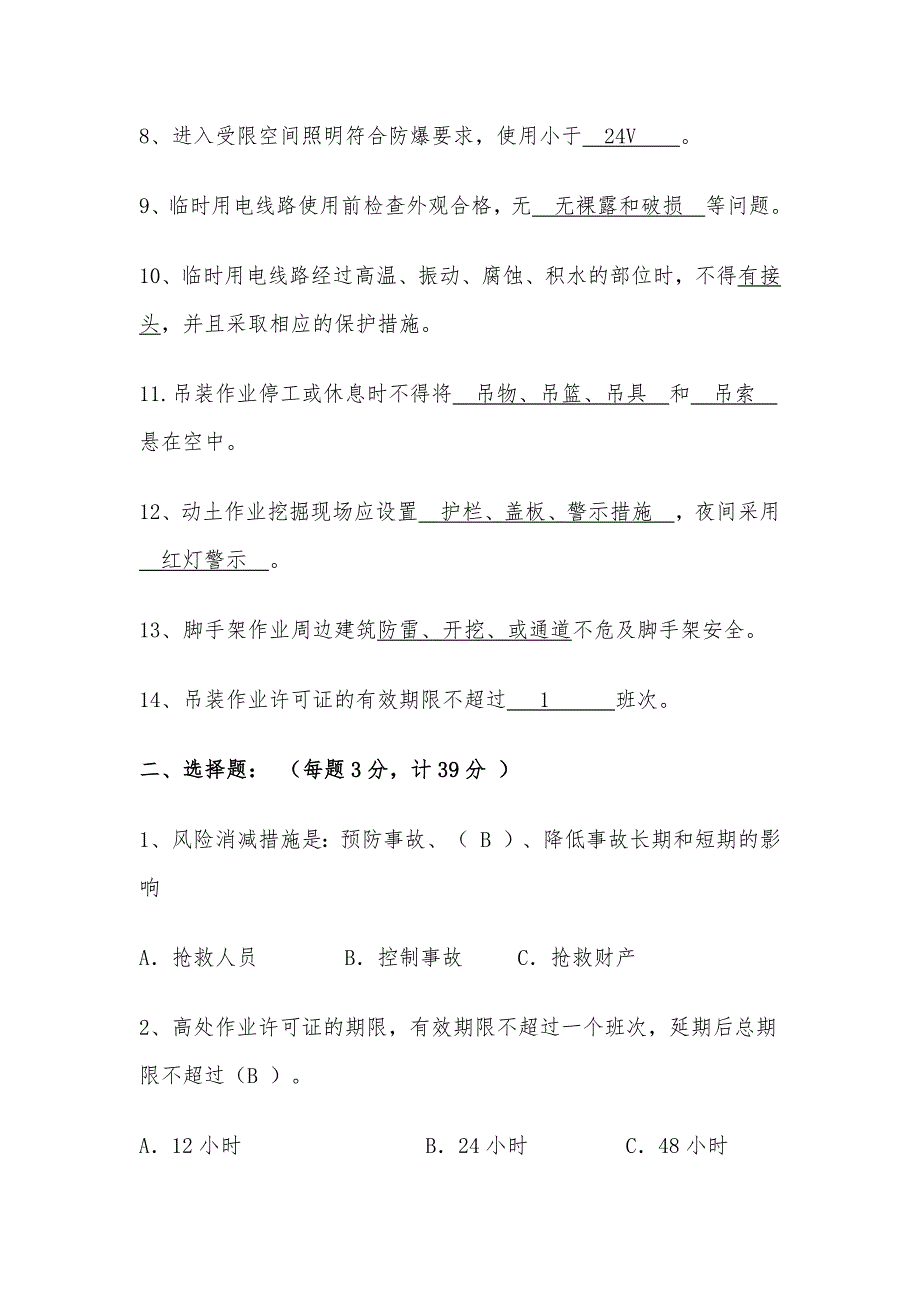 8、进入受限空间照明符合防爆要求，使用小于 24V 。
9、临时用电线路使用前检查外观合格，无 无裸露和破损 等问题。
10、临时用电线路经过高温、振动、腐蚀、积水的部位时，不得有接
头，并且采取相应的保护措施。
11.吊装作业停工或休息时不得将 吊物、吊篮、吊具 和 吊索
悬在空中。
12、动土作业挖掘现场应设置 护栏、盖板、警示措施 ，夜间采用
红灯警示 。
13、脚手架作业周边建筑防雷、开挖、或通道不危及脚手架安全。
14、吊装作业许可证的有效期限不超过 1 班次。
二、选择题： （每题3分，计39分 ）
1、风险消减措施是：预防事故、（ B ）、降低事故长期和短期的影
响
A．抢救人员 B．控制事故 C．抢救财产
2、高处作业许可证的期限，有效期限不超过一个班次，延期后总期
限不超过（B ）。
A．12小时 B．24小时 C．48小时